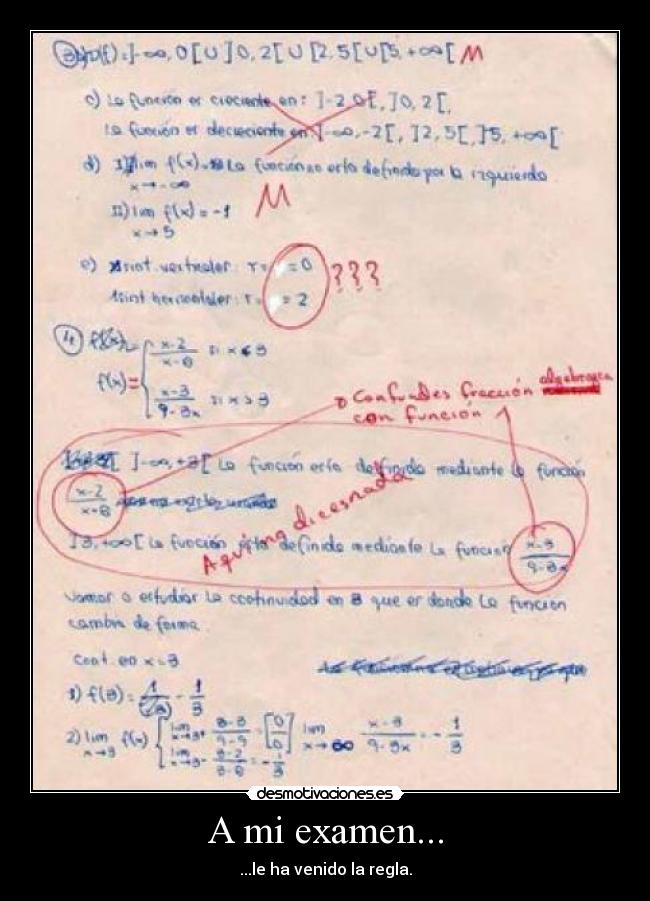 3) b) D(f) = ]-∞, 0[ U ]0, 2[ U [2, 5[ U [5, +∞[ M
c) La función es creciente en: ]-2, 0[, ]0, 2[,
La función es decreciente en: ]-∞, -2[, ]2, 5[, ]5, +∞[
d) I) lim f(x) = La función no está definida por la izquierda
x→-∞
II) lim f(x) = -1 M
x→5
e) Asint. verticales: r = = 0 ???
Asint horizontales: r = = 2
4) f(x) =
x-2
x-6
si x<3
f(x) =
x-3
9-3x
si x>3
Confundes fracción algebraica
con función
]-∞, +3[ La función está definida mediante la función
x-2
x-6
Aquí no dices nada
]3, +∞[ La función está definida mediante la función
x-3
9-3x
Vamos a estudiar la continuidad en 3 que es donde la función
cambia de forma.
Cont. en x=3
1) f(3) = - 1/3
2) lim f(x)
x→3
lim x→3+ 3-3 / 9-9 = [0/0] lim x→∞ x-3 / 9-3x = - 1/3
lim x→3- 3-2 / 3-6 = - 1/3
desmotivaciones.es
A mi examen...
...le ha venido la regla.